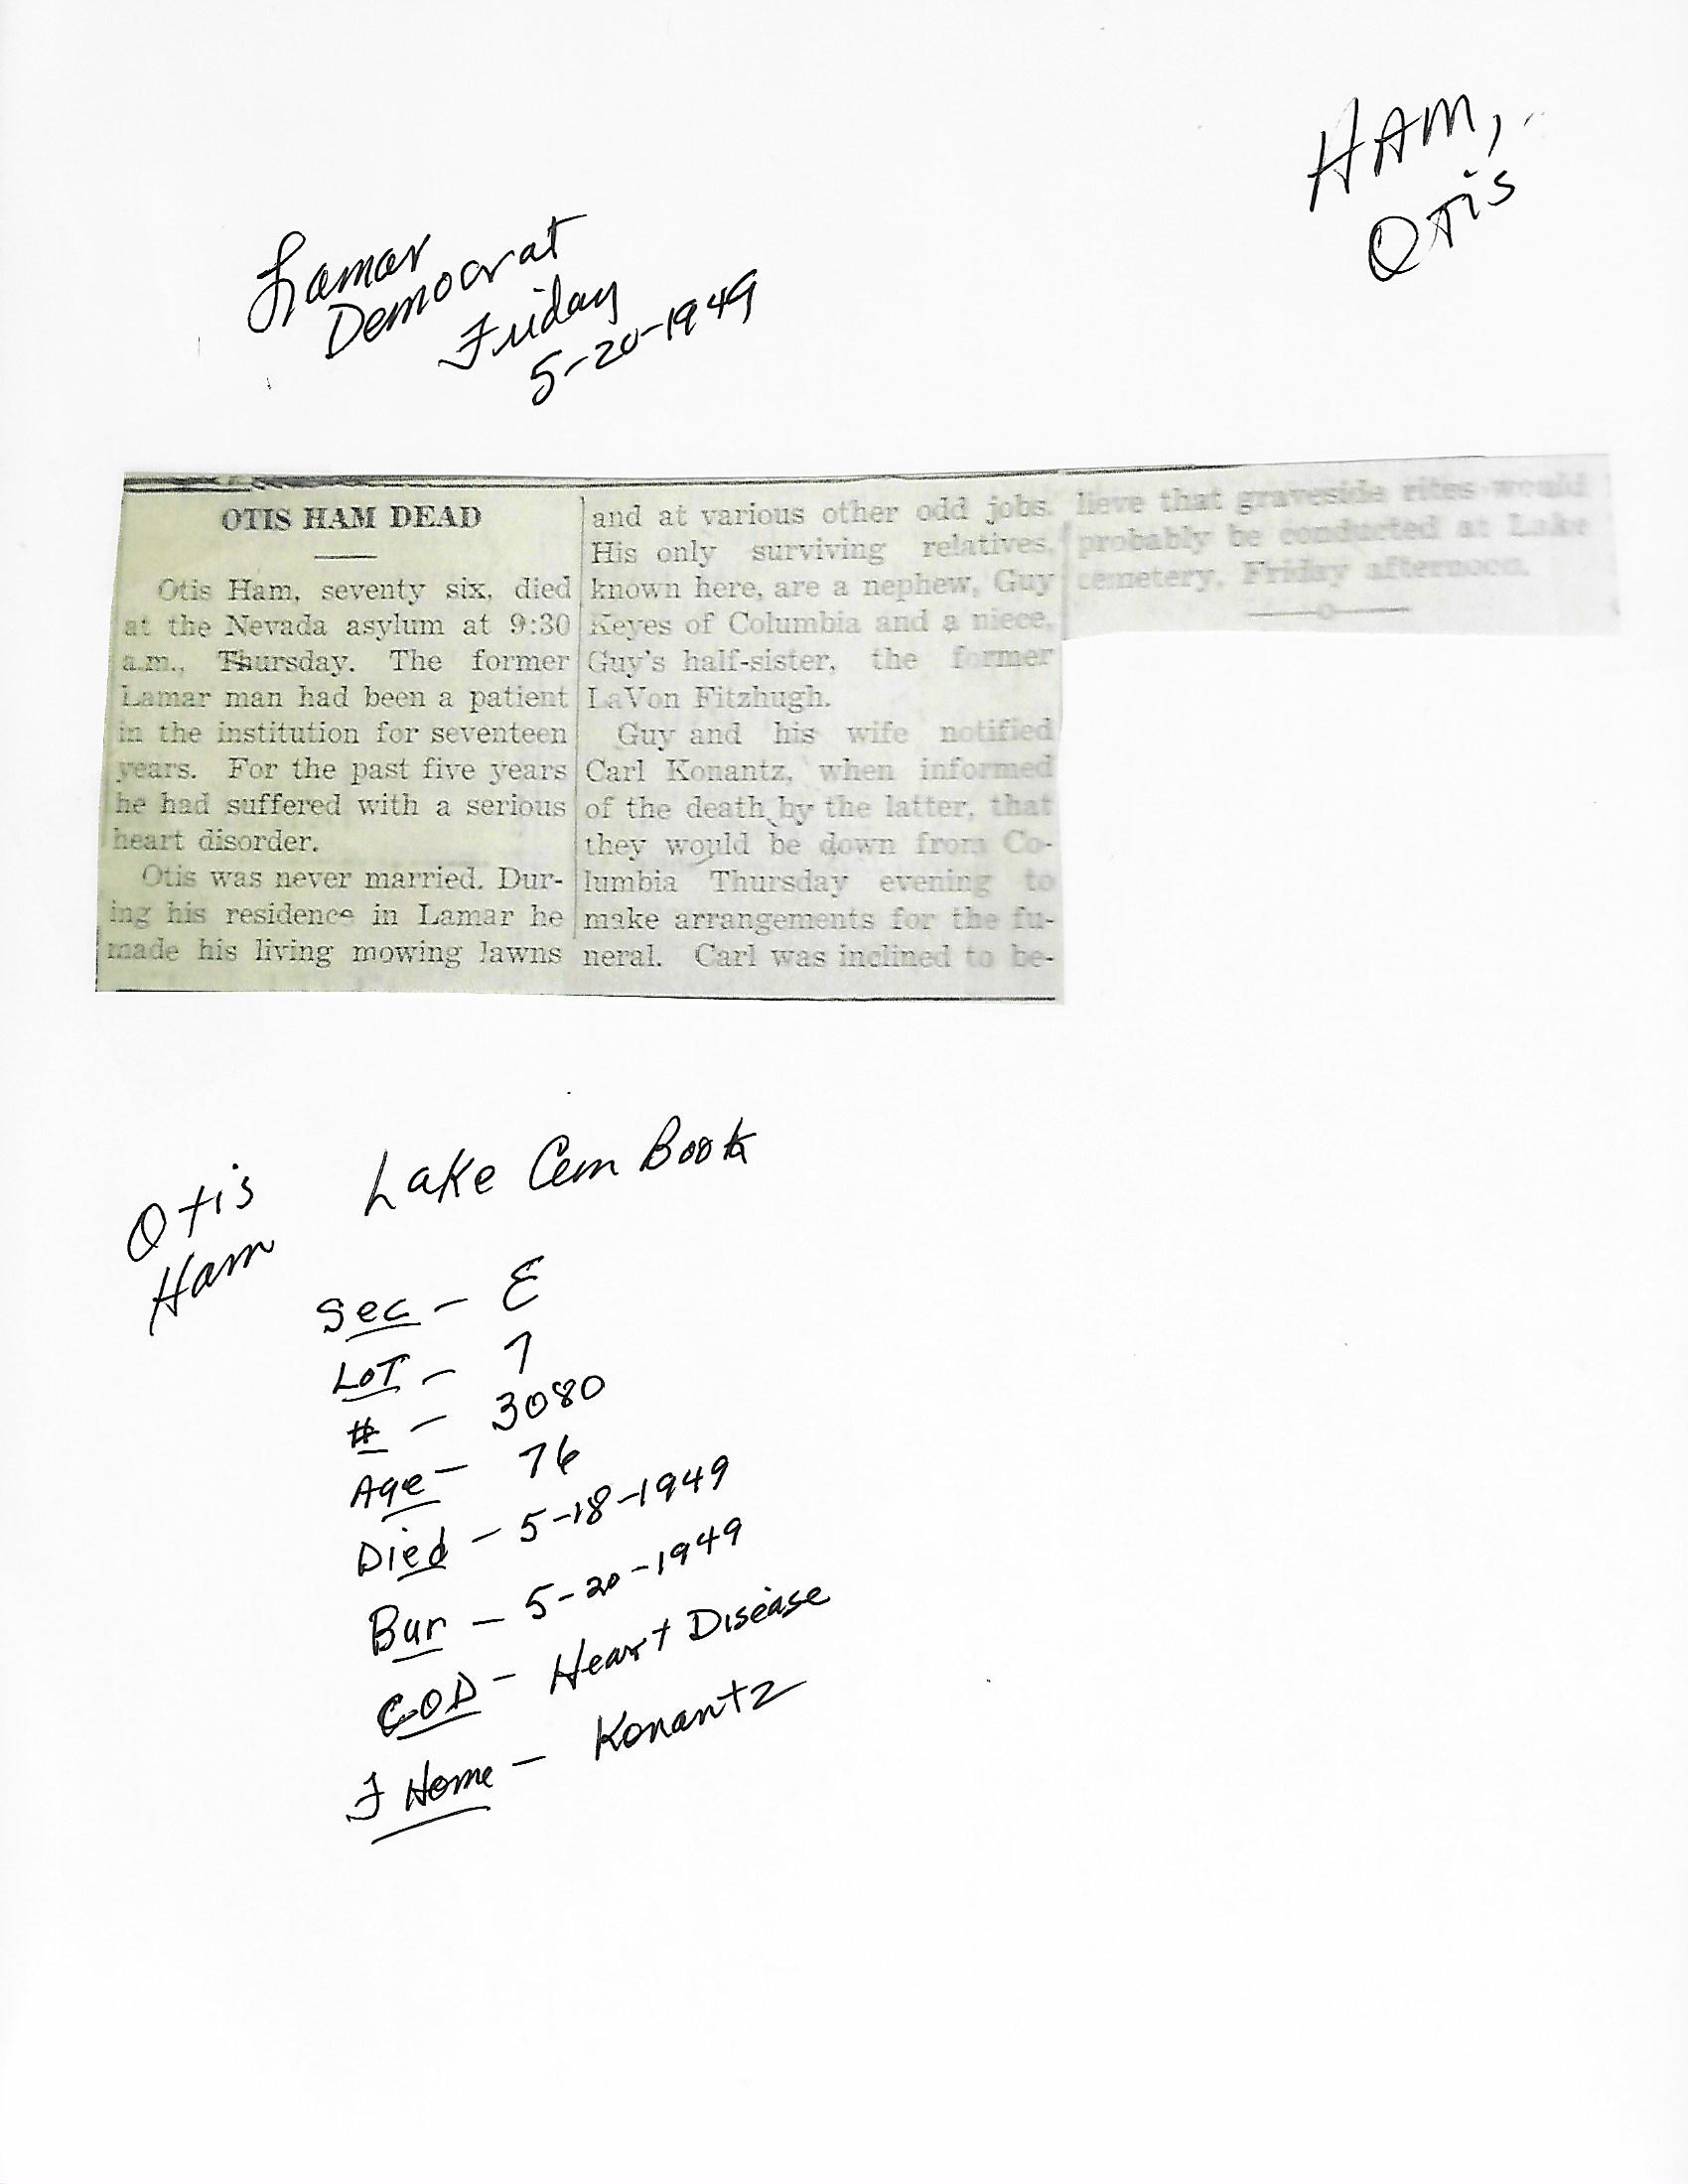 HAM,
Otis
Lamar
Democrat
Friday
5-20-1949
OTIS HAM DEAD
Otis Ham, seventy six, died
at the Nevada asylum at 9:30
a.m., Thursday. The former
Lamar man had been a patient
in the institution for seventeen
years. For the past five years
he had suffered with a serious
heart disorder.
Otis was never married. Dur-
ing his residence in Lamar he
made his living mowing lawns
and at various other odd jobs.
His only surviving relatives,
known here, are a nephew, Guy
Keyes of Columbia and a niece,
Guy's half-sister, the former
LaVon Fitzhugh.
Guy and his wife notified
Carl Konantz, when informed
of the death by the latter, that
they would be down from Co-
lumbia Thursday evening to
make arrangements for the fu-
neral. Carl was inclined to be-
lieve that graveside rites would
probably be conducted at Lake
cemetery, Friday afternoon.
Otis
Ham
Lake Cem Book
Sec - E
LOT - 7
# - 3080
Age - 76
Died - 5-18-1949
Bur - 5-20-1949
COD - Heart Disease
F Home - Konantz